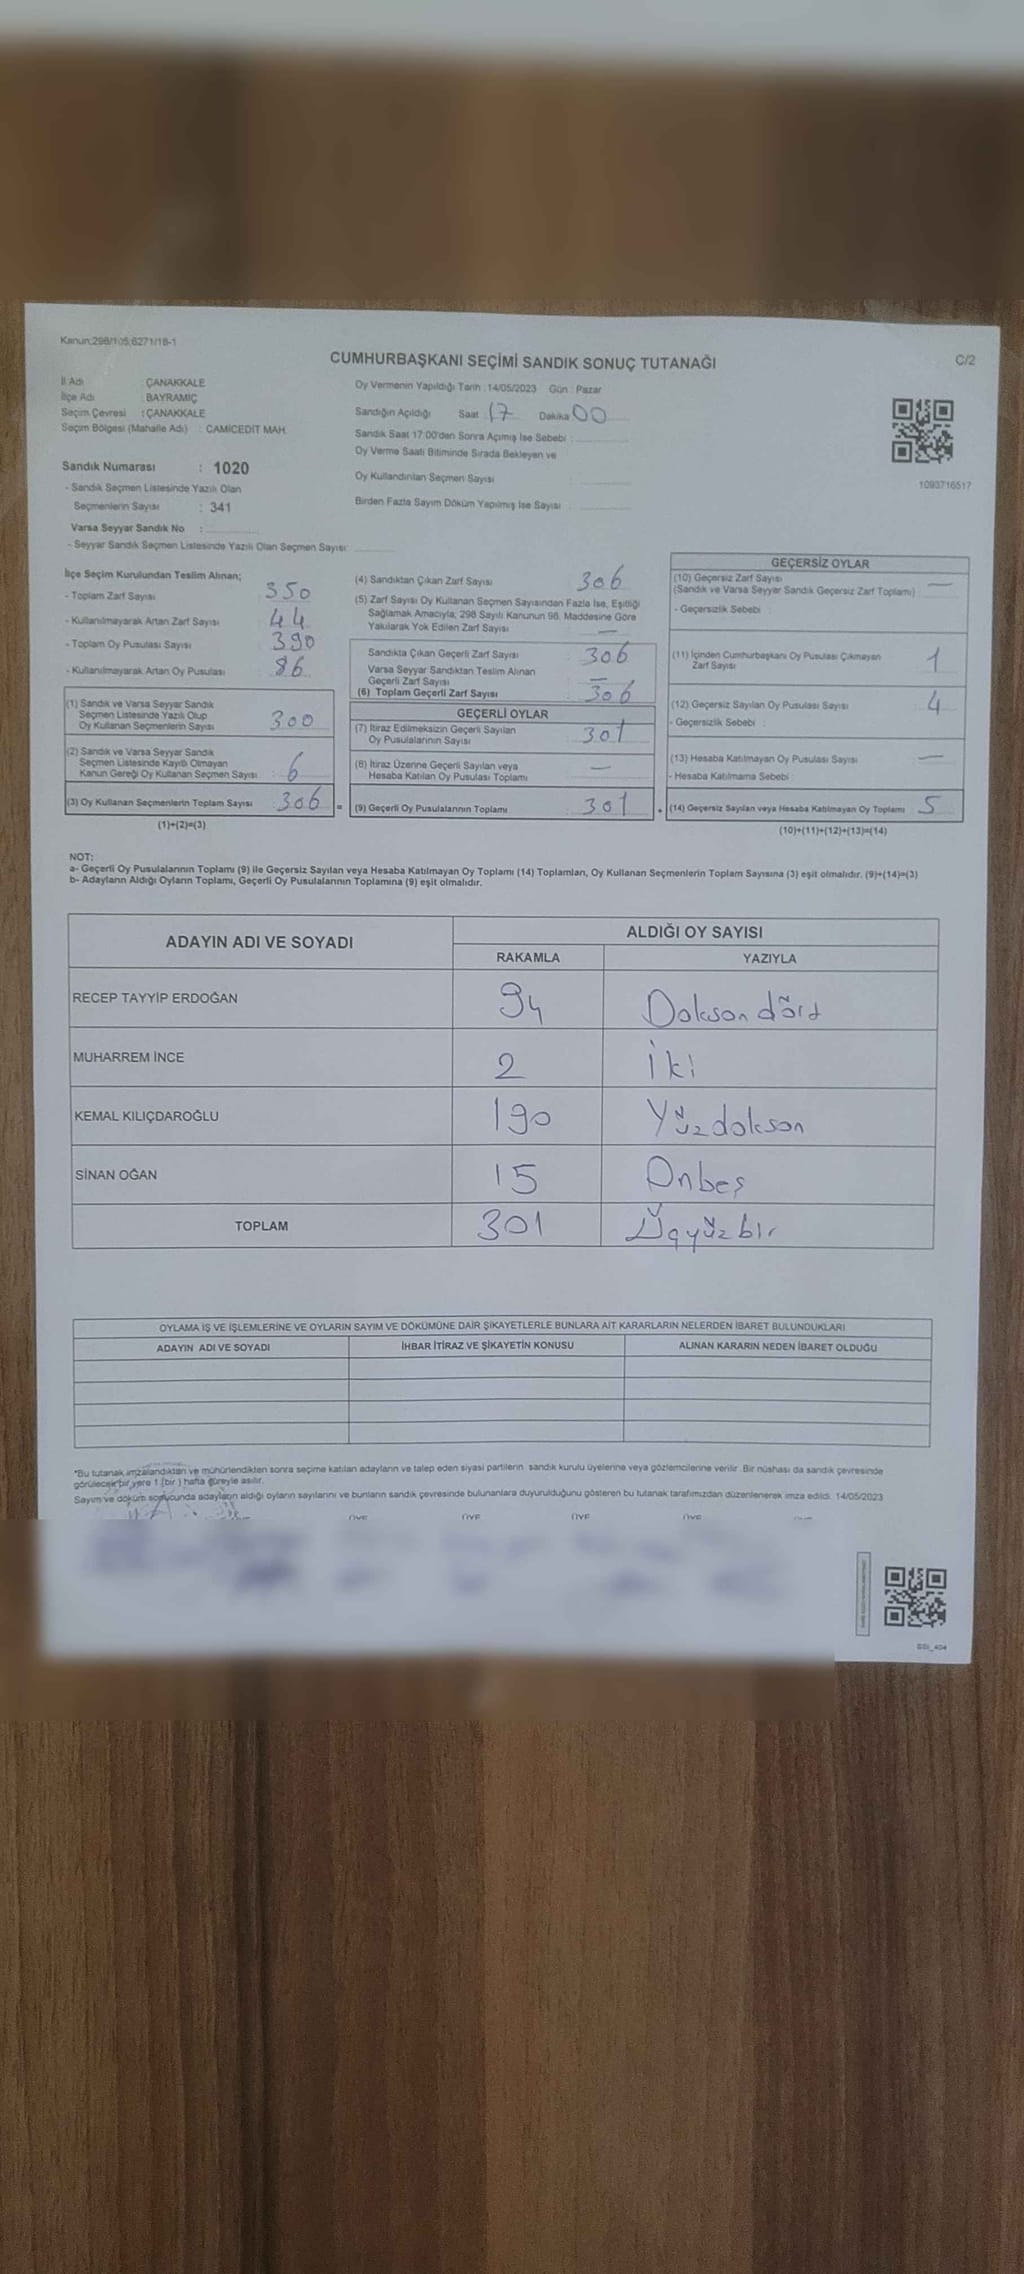 Kanun:298/105;6271/18-1
CUMHURBAŞKANI SEÇİMİ SANDIK SONUÇ TUTANAĞI
C/2
İl Adı : ÇANAKKALE
İlçe Adı : BAYRAMİÇ
Seçim Çevresi : ÇANAKKALE
Seçim Bölgesi (Mahalle Adı) : CAMİCEDİT MAH.
Sandık Numarası : 1020
- Sandık Seçmen Listesinde Yazılı Olan
Seçmenlerin Sayısı : 341
Varsa Seyyar Sandık No :
- Seyyar Sandık Seçmen Listesinde Yazılı Olan Seçmen Sayısı:
Oy Vermenin Yapıldığı Tarih : 14/05/2023 Gün : Pazar
Sandığın Açıldığı Saat 17 Dakika 00
Sandık Saat 17:00'den Sonra Açımış İse Sebebi :
Oy Verme Saati Bitiminde Sırada Bekleyen ve
Oy Kullandırılan Seçmen Sayısı :
Birden Fazla Sayım Döküm Yapılmış İse Sayısı :
1093716517
İlçe Seçim Kurulundan Teslim Alınan;
- Toplam Zarf Sayısı : 350
- Kullanılmayarak Artan Zarf Sayısı : 44
- Toplam Oy Pusulası Sayısı : 390
- Kullanılmayarak Artan Oy Pusulası : 86
(1) Sandık ve Varsa Seyyar Sandık
Seçmen Listesinde Yazılı Olup
Oy Kullanan Seçmenlerin Sayısı : 300
(2) Sandık ve Varsa Seyyar Sandık
Seçmen Listesinde Kayıtlı Olmayan
Kanun Gereği Oy Kullanan Seçmen Sayısı : 6
(3) Oy Kullanan Seçmenlerin Toplam Sayısı : 306 =
(1)+(2)=(3)
(4) Sandıktan Çıkan Zarf Sayısı : 306
(5) Zarf Sayısı Oy Kullanan Seçmen Sayısından Fazla İse, Eşitliği
Sağlamak Amacıyla, 298 Sayılı Kanunun 98. Maddesine Göre
Yakılarak Yok Edilen Zarf Sayısı : —
Sandıkta Çıkan Geçerli Zarf Sayısı : 306
Varsa Seyyar Sandıktan Teslim Alınan
Geçerli Zarf Sayısı : —
(6) Toplam Geçerli Zarf Sayısı : 306
GEÇERLİ OYLAR
(7) İtiraz Edilmeksizin Geçerli Sayılan
Oy Pusulalarının Sayısı : 301
(8) İtiraz Üzerine Geçerli Sayılan veya
Hesaba Katılan Oy Pusulası Toplamı : —
(9) Geçerli Oy Pusulalarının Toplamı : 301 +
GEÇERSİZ OYLAR
(10) Geçersiz Zarf Sayısı
(Sandık ve Varsa Seyyar Sandık Geçersiz Zarf Toplamı) : —
- Geçersizlik Sebebi :
(11) İçinden Cumhurbaşkanı Oy Pusulası Çıkmayan
Zarf Sayısı : 1
(12) Geçersiz Sayılan Oy Pusulası Sayısı : 4
- Geçersizlik Sebebi :
(13) Hesaba Katılmayan Oy Pusulası Sayısı : —
- Hesaba Katılmama Sebebi :
(14) Geçersiz Sayılan veya Hesaba Katılmayan Oy Toplamı : 5
(10)+(11)+(12)+(13)=(14)
NOT:
a- Geçerli Oy Pusulalarının Toplamı (9) ile Geçersiz Sayılan veya Hesaba Katılmayan Oy Toplamı (14) Toplamları, Oy Kullanan Seçmenlerin Toplam Sayısına (3) eşit olmalıdır. (9)+(14)=(3)
b- Adayların Aldığı Oyların Toplamı, Geçerli Oy Pusulalarının Toplamına (9) eşit olmalıdır.
ADAYIN ADI VE SOYADI
ALDIĞI OY SAYISI
RAKAMLA YAZIYLA
RECEP TAYYİP ERDOĞAN 94 Doksan dört
MUHARREM İNCE 2 İki
KEMAL KILIÇDAROĞLU 190 Yüzdoksan
SİNAN OĞAN 15 Onbeş
TOPLAM 301 Üçyüzbir
OYLAMA İŞ VE İŞLEMLERİNE VE OYLARIN SAYIM VE DÖKÜMÜNE DAİR ŞİKAYETLERLE BUNLARA AİT KARARLARIN NELERDEN İBARET BULUNDUKLARI
ADAYIN ADI VE SOYADI İHBAR İTİRAZ VE ŞİKAYETİN KONUSU ALINAN KARARIN NEDEN İBARET OLDUĞU
*Bu tutanak imzalandıktan ve mühürlendikten sonra seçime katılan adayların ve talep eden siyasi partilerin sandık kurulu üyelerine veya gözlemcilerine verilir. Bir nüshası da sandık çevresinde
görülecek bir yere 1 (bir) hafta süreyle asılır.
Sayım ve döküm sonucunda adayların aldığı oyların sayılarını ve bunların sandık çevresinde bulunanlara duyurulduğunu gösteren bu tutanak tarafımızdan düzenlenerek imza edildi. 14/05/2023
ÜYE ÜYE ÜYE ÜYE